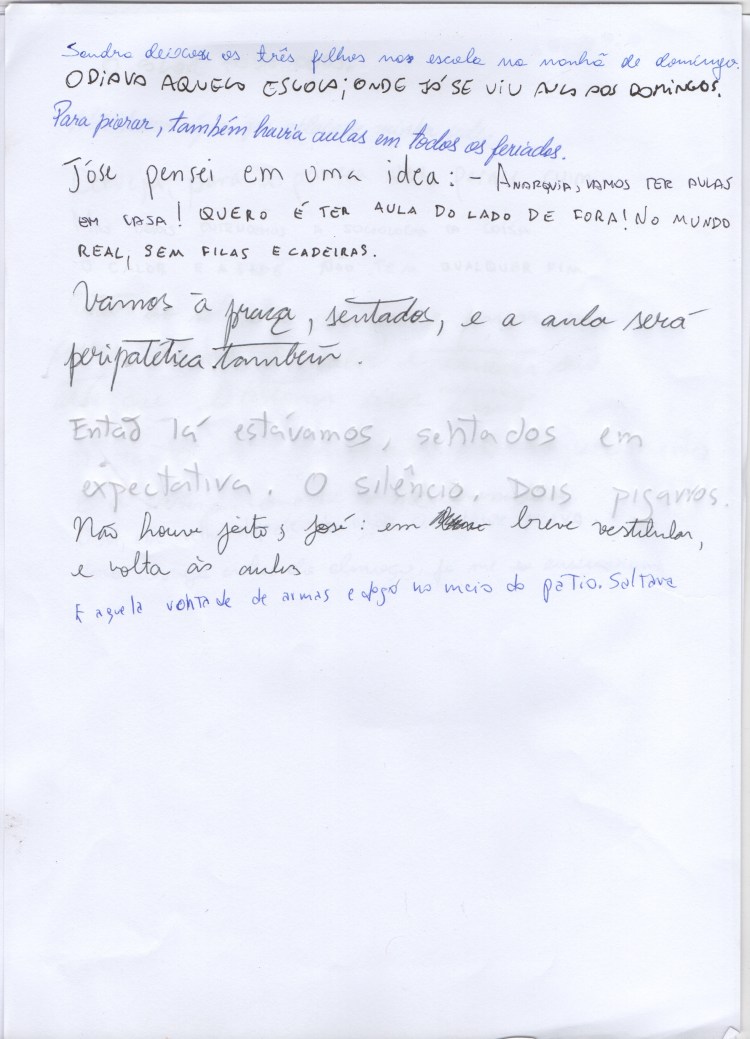 Sandra deixou os três filhos na escola na manhã de domingo.
ODIAVA AQUELA ESCOLA; ONDE JÁ SE VIU AULA AOS DOMINGOS.
Para piorar, também havia aulas em todos os feriados.
Jóse pensei em uma idea: - ANARQUIA, VAMOS TER AULAS
EM CASA! QUERO É TER AULA DO LADO DE FORA! NO MUNDO
REAL, SEM FILAS E CADEIRAS.
Vamos à praça, sentados, e a aula será
peripatética também.
Então lá estávamos, sentados em
expectativa. O silêncio. Dois pigarros.
Não houve jeito, José: em breve vestibular,
e volta às aulas
E aquela vontade de armas e fogo no meio do pátio. Saltava